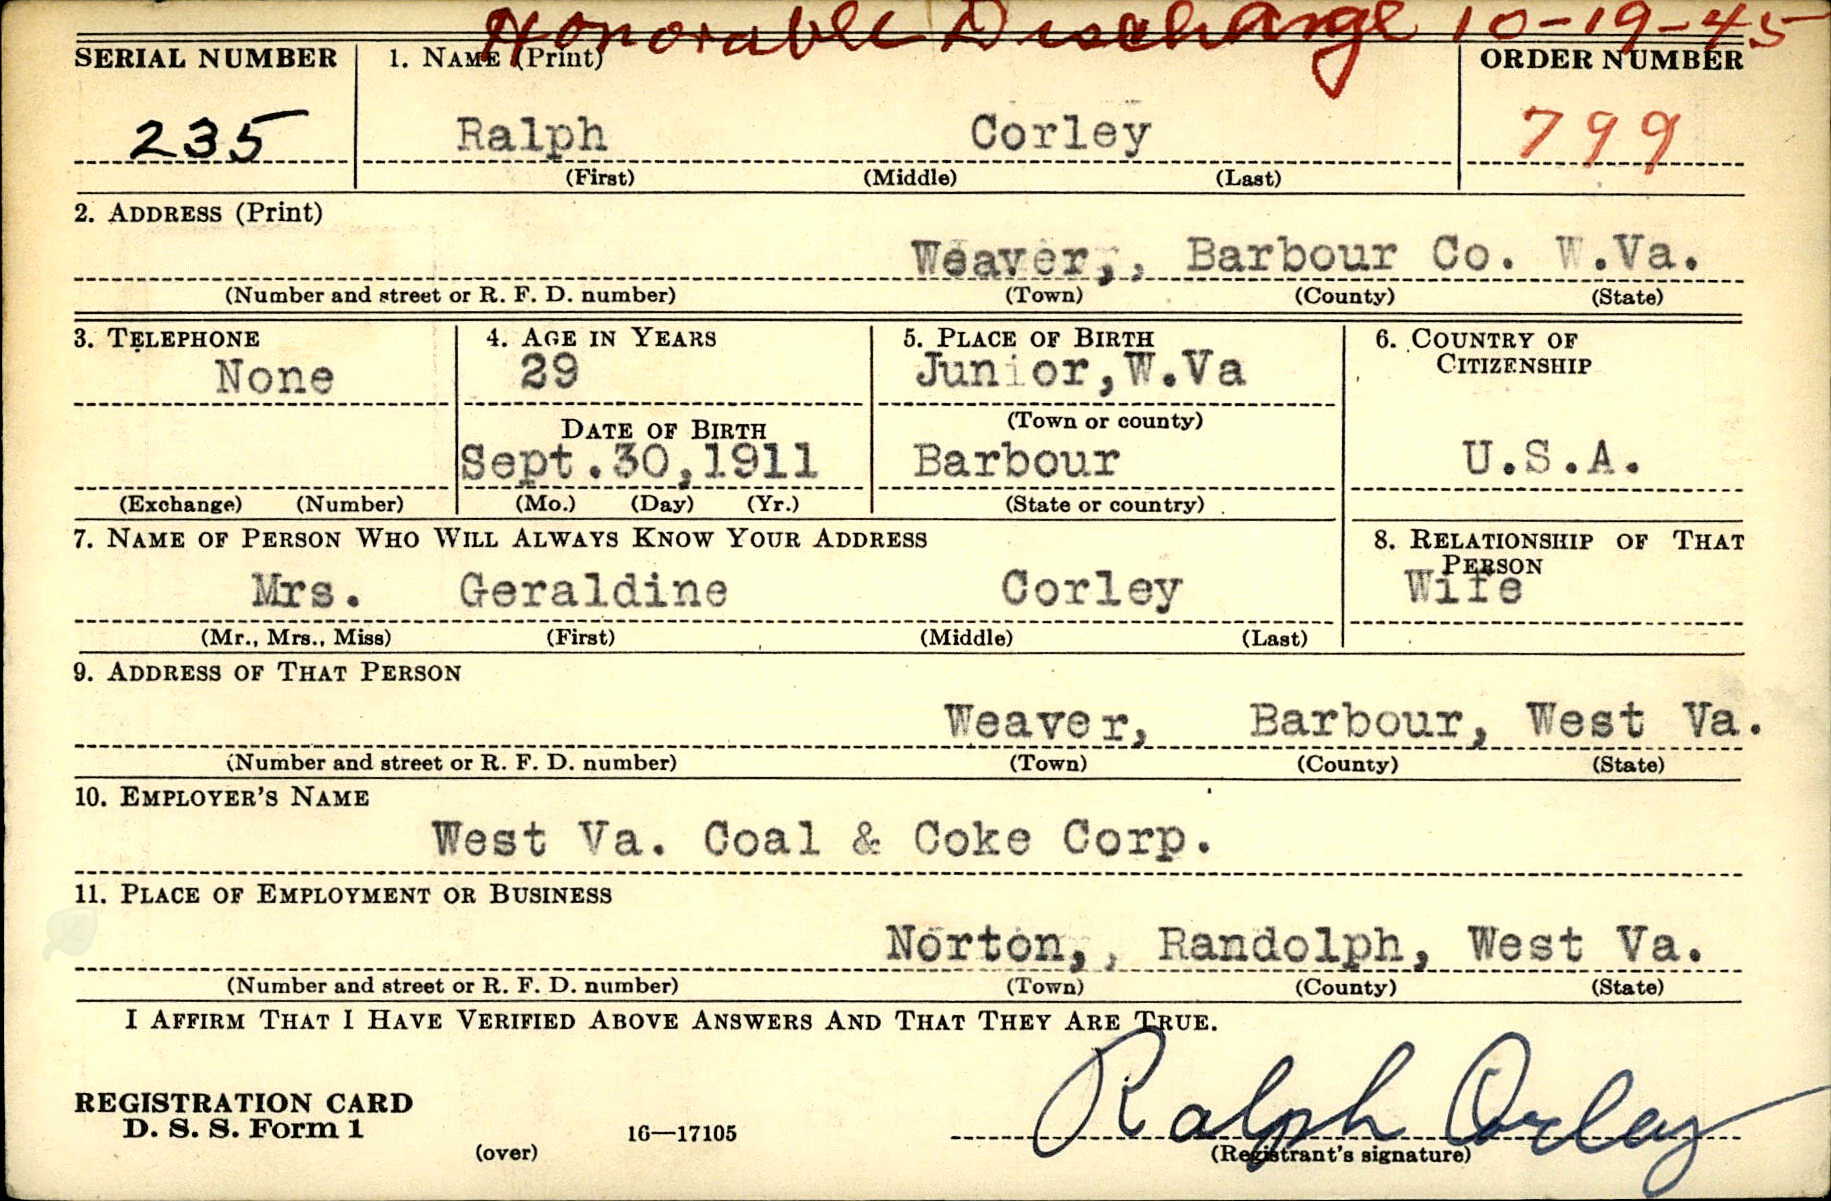 Honorable Discharge 10-19-45
SERIAL NUMBER 1. NAME (Print) ORDER NUMBER
235 Ralph Corley 799
(First) (Middle) (Last)
2. ADDRESS (Print)
Weaver,, Barbour Co. W.Va.
(Number and street or R. F. D. number) (Town) (County) (State)
3. TELEPHONE 4. AGE IN YEARS 5. PLACE OF BIRTH 6. COUNTRY OF
CITIZENSHIP
None 29 Junior,W.Va
(Town or county)
DATE OF BIRTH
Sept.30,1911 Barbour U.S.A.
(Exchange) (Number) (Mo.) (Day) (Yr.) (State or country)
7. NAME OF PERSON WHO WILL ALWAYS KNOW YOUR ADDRESS 8. RELATIONSHIP OF THAT
PERSON
Mrs. Geraldine Corley Wife
(Mr., Mrs., Miss) (First) (Middle) (Last)
9. ADDRESS OF THAT PERSON
Weaver, Barbour, West Va.
(Number and street or R. F. D. number) (Town) (County) (State)
10. EMPLOYER'S NAME
West Va. Coal & Coke Corp.
11. PLACE OF EMPLOYMENT OR BUSINESS
Norton,, Randolph, West Va.
(Number and street or R. F. D. number) (Town) (County) (State)
I AFFIRM THAT I HAVE VERIFIED ABOVE ANSWERS AND THAT THEY ARE TRUE.
Ralph Corley
REGISTRATION CARD
D. S. S. Form 1 16—17105
(over) (Registrant's signature)